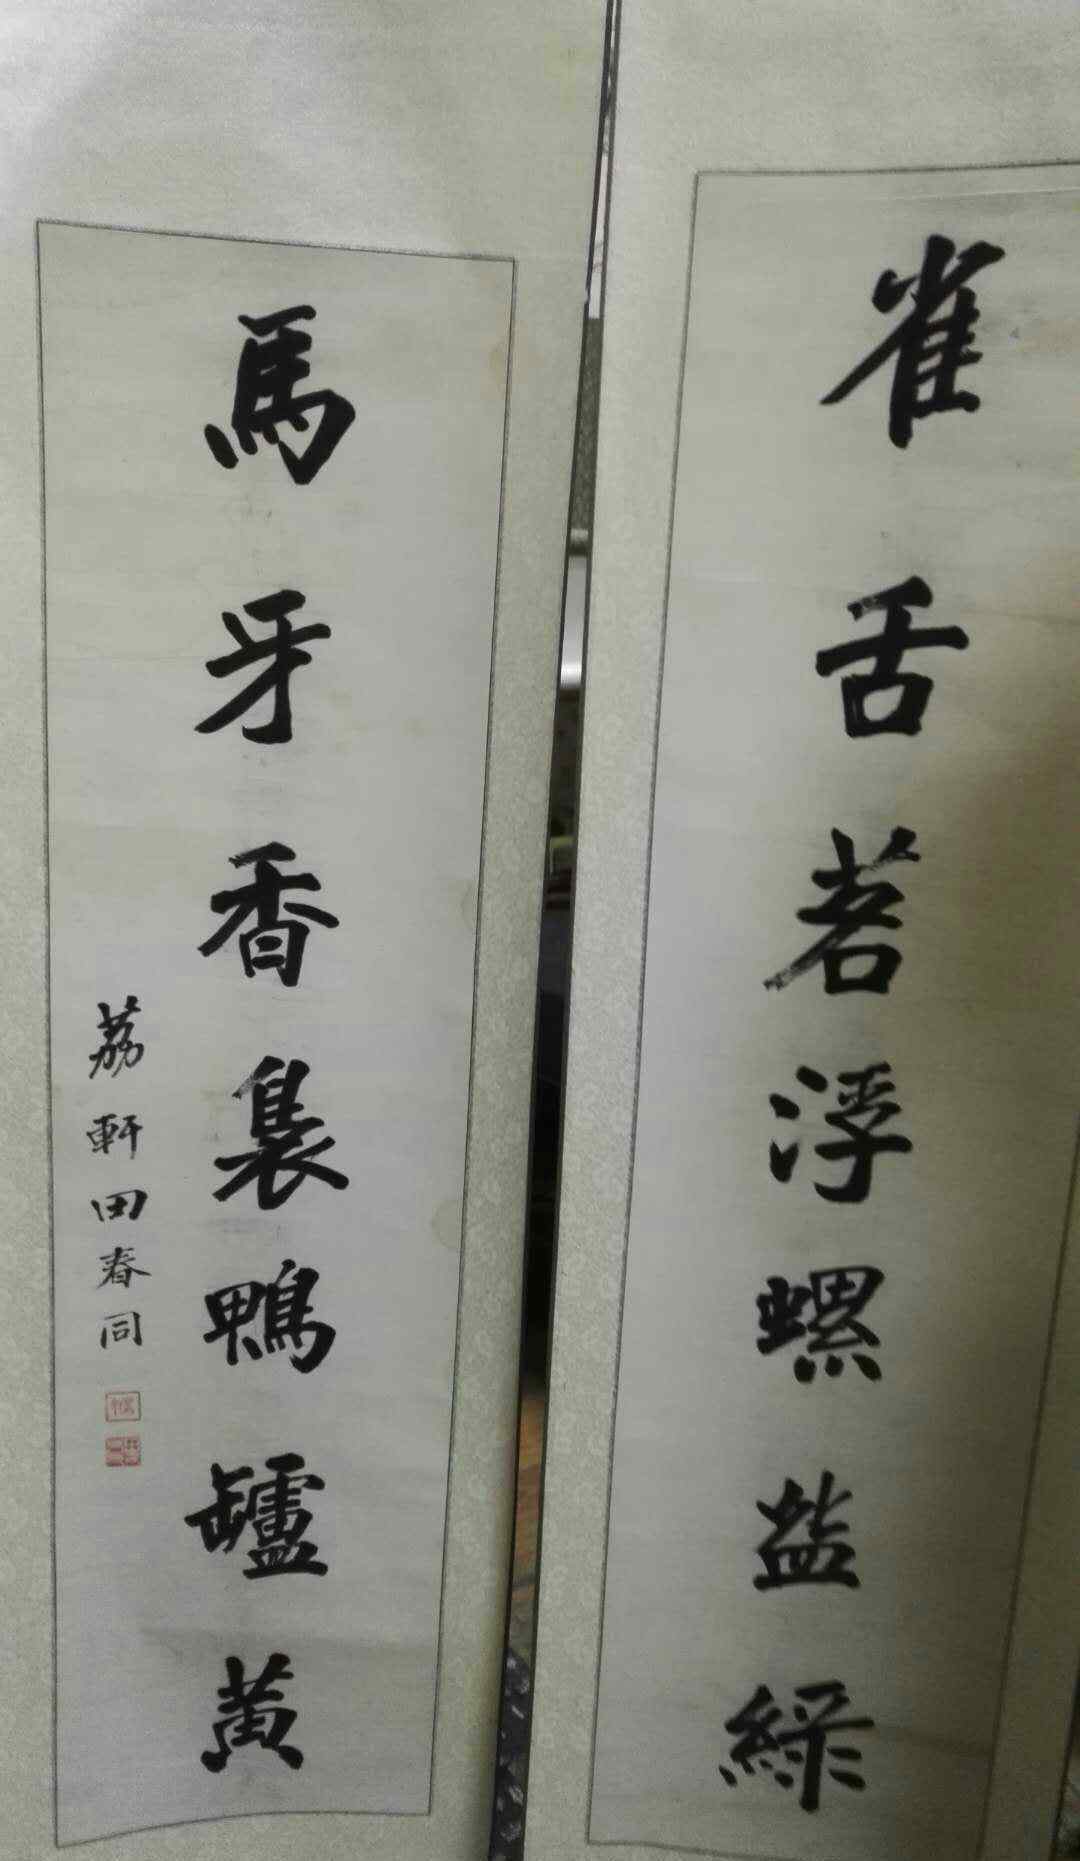 雀舌茗浮螺盏綠
馬牙香裊鴨罏黃
荔軒田春同